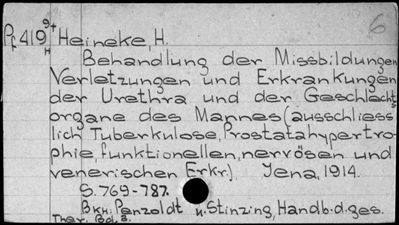 Pf 419 9+ H Heineke, H. 6
Behandlung der Missbildungen
Verletzungen und Erkrankungen
der Urethra und der Geschlechts
organe des Mannes (ausschliess
lich Tuberkulose, Prostatahypertro-
phie, funktionellen, nervösen und
venerischen Erkr.). Jena, 1914.
S. 769-787.
Bkh. Penzoldt u. Stinzing, Handb. d. ges.
Ther. Bd. 3.